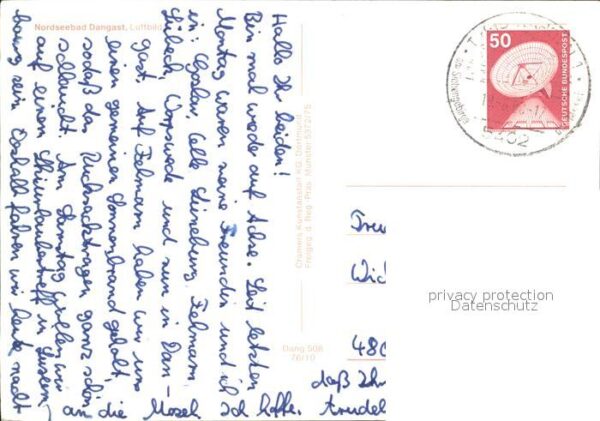 Nordseebad Dangast, Luftbild
Hallo Ihr beiden!
Bin mal wieder auf Achse. Seit letzten
Montag waren meine Freundin und ich
in: Goslar, Celle, Lüneburg, Fehmarn,
Lübeck, Worpswede und nun in Dan-
gast. Auf Fehmarn haben wir uns
einen gemeinen Sonnenbrand geholt,
sodaß das Rucksacktragen ganz schön
schlaucht. Am Samstag wollen wir
auf einem in
sein. Deshalb fahren wir heute nacht
an die Mosel. Ich hoffe,
daß Ihr
Cramers Kunstanstalt KG, Dortmund
Freigeg. d. Reg.-Präs. Münster 5372/75
Dang 508
76/10
50
DEUTSCHE BUNDESPOST
privacy protection
Datenschutz